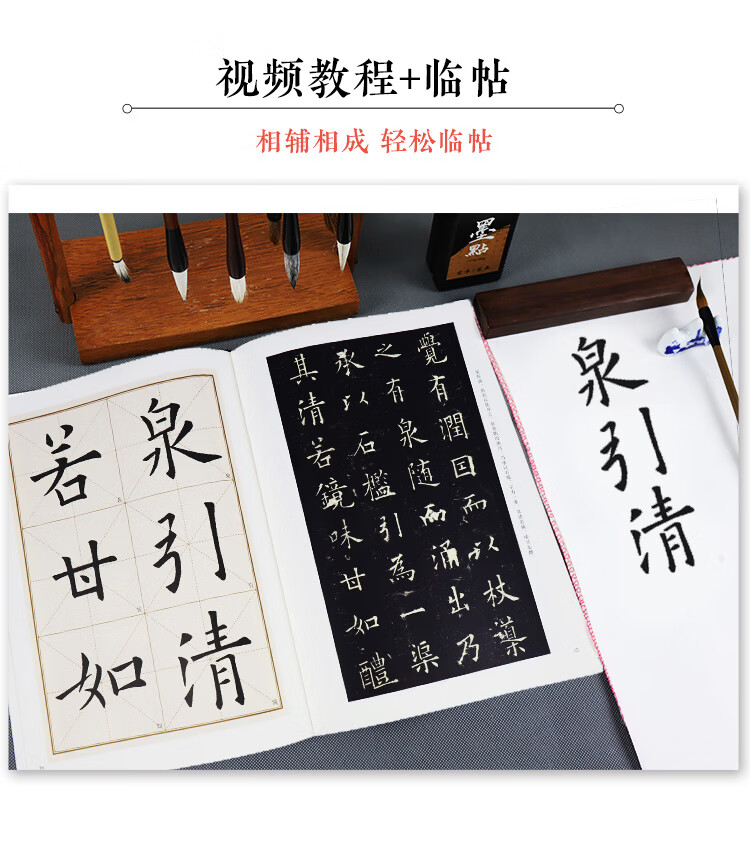 视频教程+临帖
相辅相成 轻松临帖
墨點
泉引清
若甘如
覺有潤囙而以杖導
之有泉随而涌出乃
承以石檻引為一渠
其清若鏡味甘如醴
泉引清